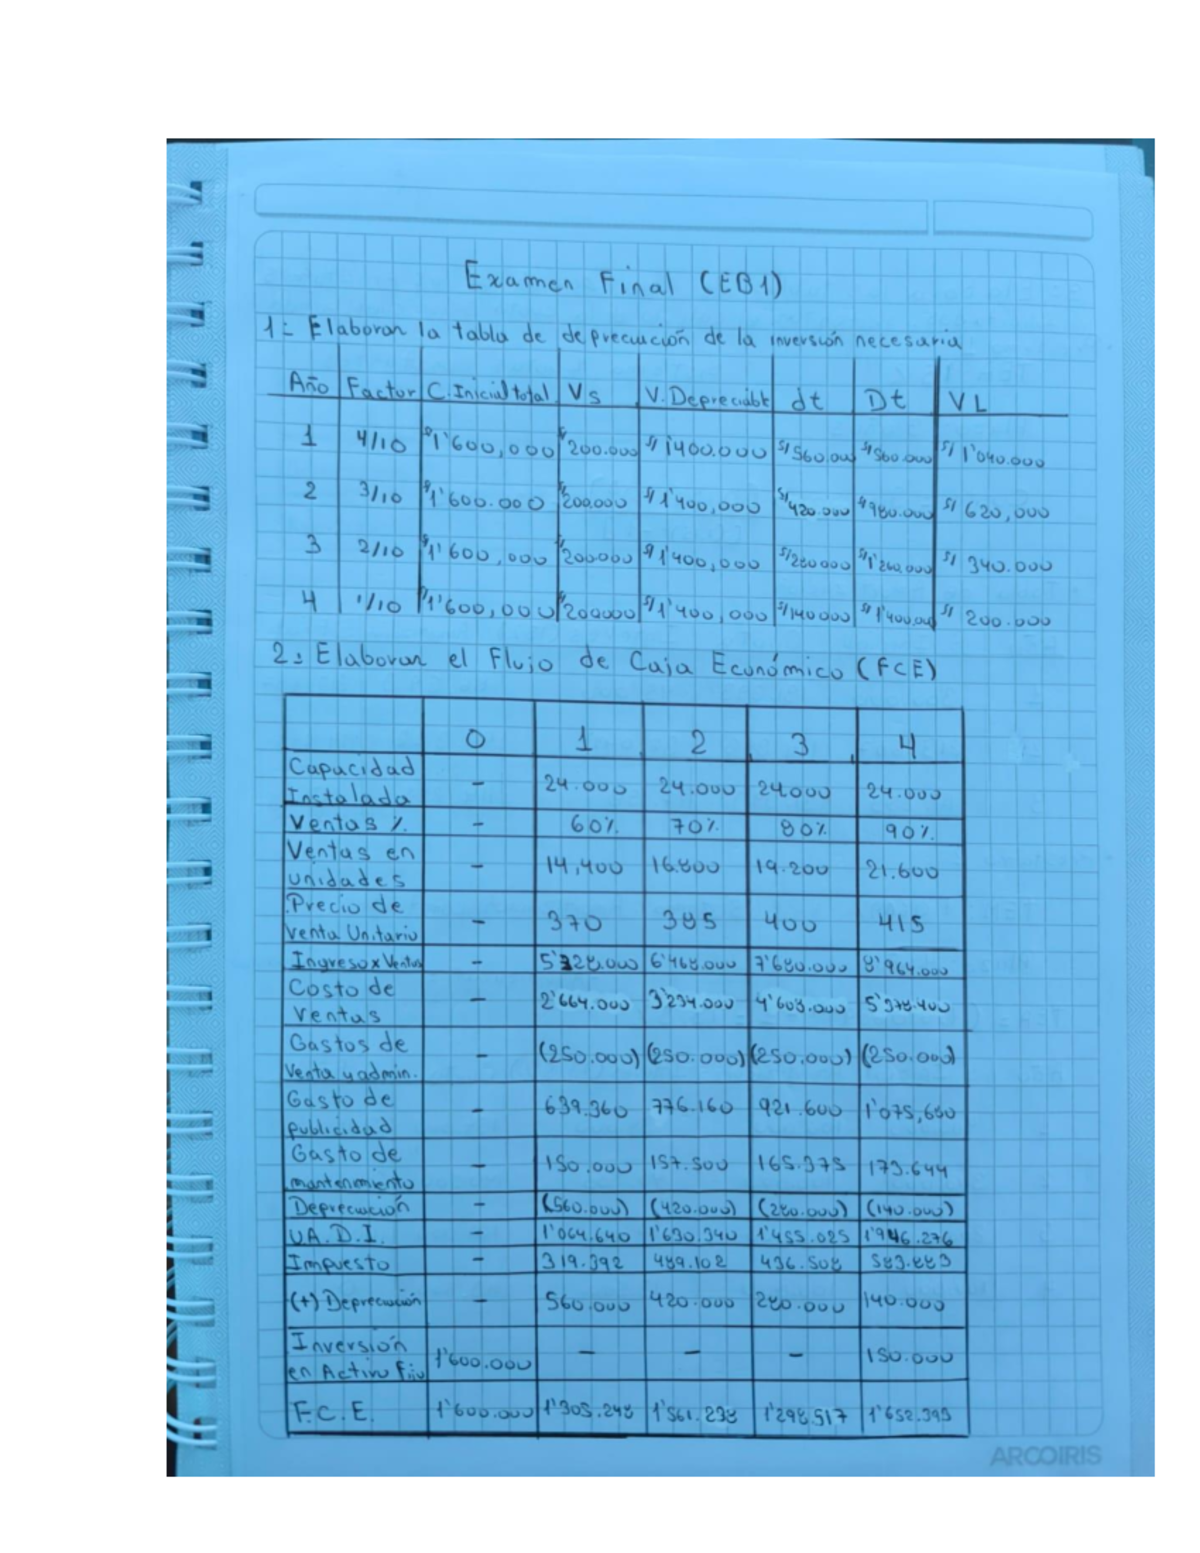 Examen Final (EB1)
1= Elaboran la tabla de depreciación de la inversión necesaria
Año Factor C.Inicial total Vs V.Depreciable dt Dt VL
1 4/10 S/1'600,000 S/200.000 S/1400.000 S/560.000 S/560.000 S/1'040.000
2 3/10 S/1'600.000 S/200.000 S/1'400,000 S/420.000 S/980.000 S/620,000
3 2/10 S/1'600,000 S/200000 S/1'400,000 S/280000 S/1'260,000 S/340.000
4 1/10 S/1'600,000 S/200000 S/1'400,000 S/140000 S/1'400,000 S/200.000
2: Elaboran el Flujo de Caja Económico (FCE)
0 1 2 3 4
Capacidad
Instalada - 24.000 24.000 24000 24.000
Ventas % - 60% 70% 80% 90%
Ventas en
unidades - 14,400 16.800 19.200 21.600
Precio de
venta Unitario - 370 385 400 415
Ingreso x Ventas - 5'328.000 6'468.000 7'680.000 8'964.000
Costo de
Ventas - 2'664.000 3'234.000 4'608.000 5'378.400
Gastos de
Venta y admin. - (250.000) (250.000) (250.000) (250.000)
Gasto de
publicidad - 639.360 776.160 921.600 1'075,680
Gasto de
mantenimiento - 150.000 157.500 165.375 173.644
Depreciación - (560.000) (420.000) (280.000) (140.000)
U.A.D.I. - 1'064.640 1'630.340 1'455.025 1'946.276
Impuesto - 319.392 489.102 436.508 583.883
(+) Depreciación - 560.000 420.000 280.000 140.000
Inversión
en Activo Fijo 1'600.000 - - - 150.000
F.C.E. 1'600.000 1'305.248 1'561.238 1'298.517 1'652.393
ARCOIRIS